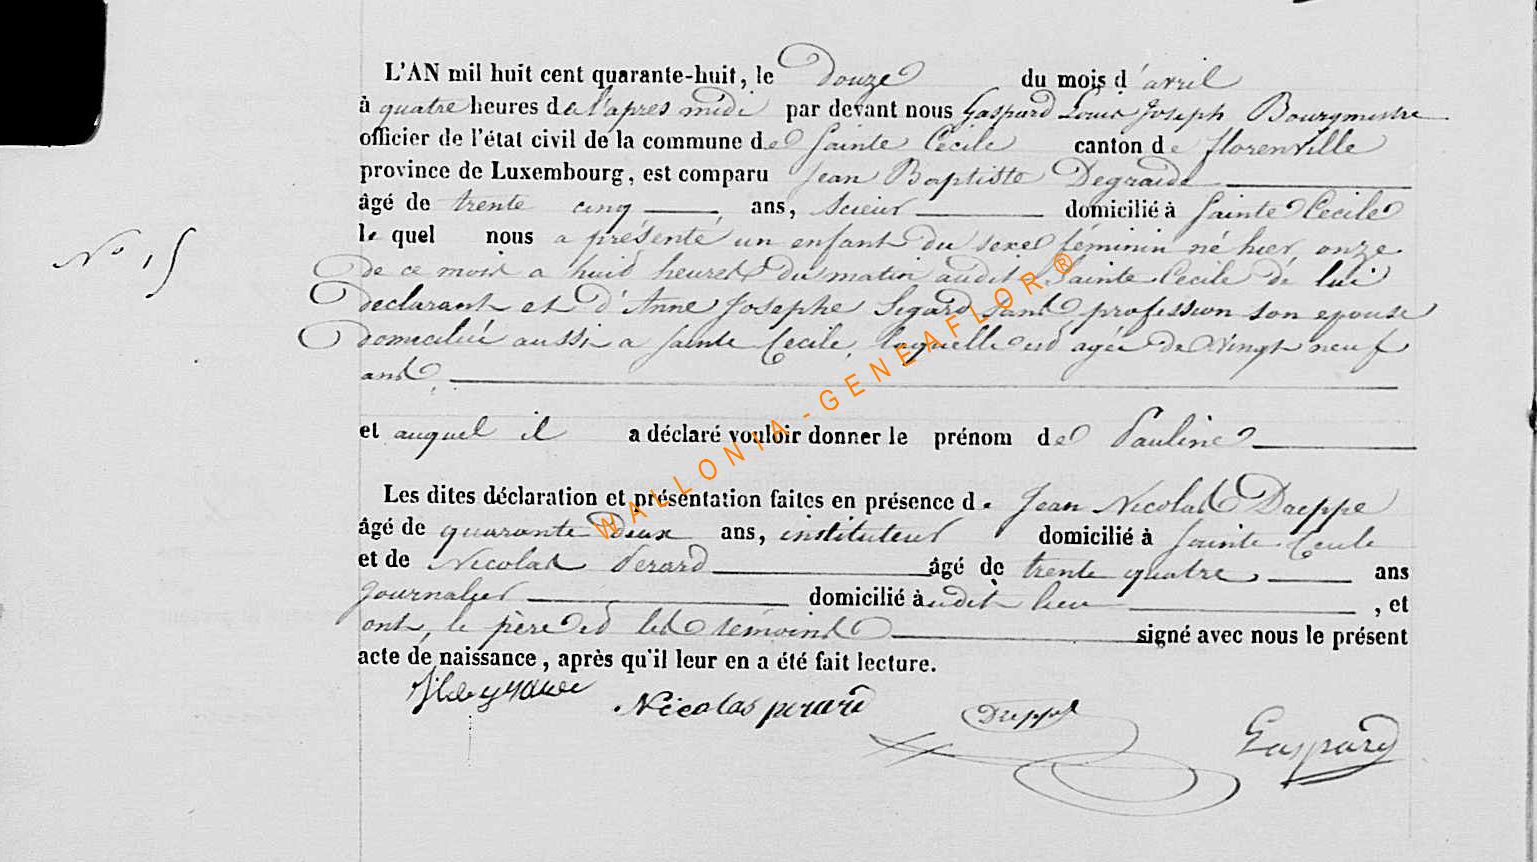 L'AN mil huit cent quarante-huit, le Douze du mois d'avril
à quatre heures de l'apres midi par devant nous Gaspard Louis Joseph Bourgmestre
officier de l'état civil de la commune de Sainte Cécile canton de florenville
province de Luxembourg, est comparu Jean Baptiste Degraide
âgé de trente cinq ans, scieur domicilié à Sainte Cecile
le quel nous a présenté un enfant du sexe féminin né hier onze
de ce mois a huit heures du matin audit Sainte Cecile de lui
N° 15
declarant et d'Anne Josephe Sigard sans profession son epouse
domiciliée aussi a Sainte Cecile, laquelle est agée de vingt neuf
ans,
et auquel il a déclaré vouloir donner le prénom de Pauline
Les dites déclaration et présentation faites en présence de Jean Nicolas Daeppe
âgé de quarante deux ans, instituteur domicilié à Sainte Cecile
et de Nicolas Perard âgé de trente quatre ans
journalier domicilié audit lieu, et
ont, le père et les témoins signé avec nous le présent
acte de naissance, après qu'il leur en a été fait lecture.
Nicolas perard
Gaspard
WALLONIA-GENEAFLOR®